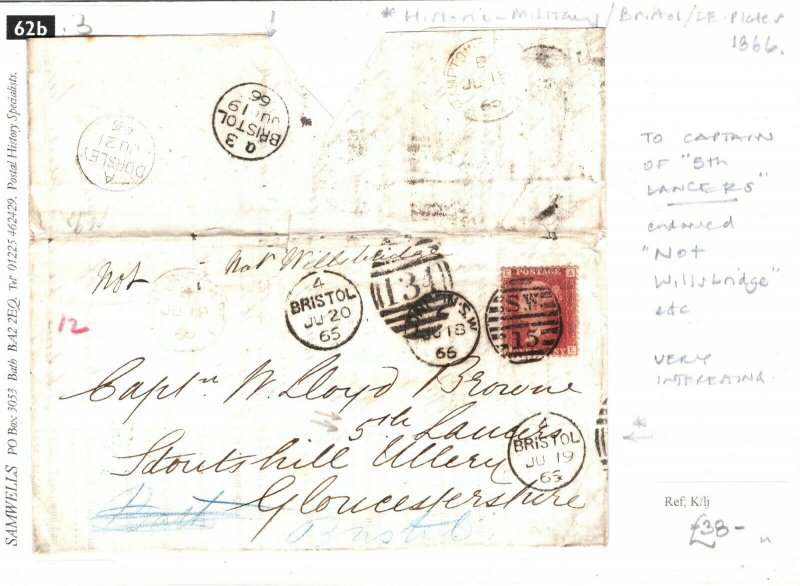 62b
.3
* Historic - Military / Bristol / LE-Plates
1866.
SAMWELLS PO Box 3053 Bath BA2 2EQ. Tel 01225 462429. Postal History Specialists.
A
DURSLEY
JU 21
a 3
BRISTOL
JU 19
66
TO CAPTAIN
OF "5th
LANCERS"
endorsed
"Not
Willsbridge"
etc
VERY
INTERESTING.
Not
Not Willsbridge
12
4
BRISTOL
JU 20
65
134
S.W
JU 18
66
POSTAGE
E A
S.W
15
E
Captn W. Lloyd Browne
5th Lancers
Stoutshill Ulley
Gloucestershire
Bristol
BRISTOL
JU 19
65
Ref; K/lj
£38-